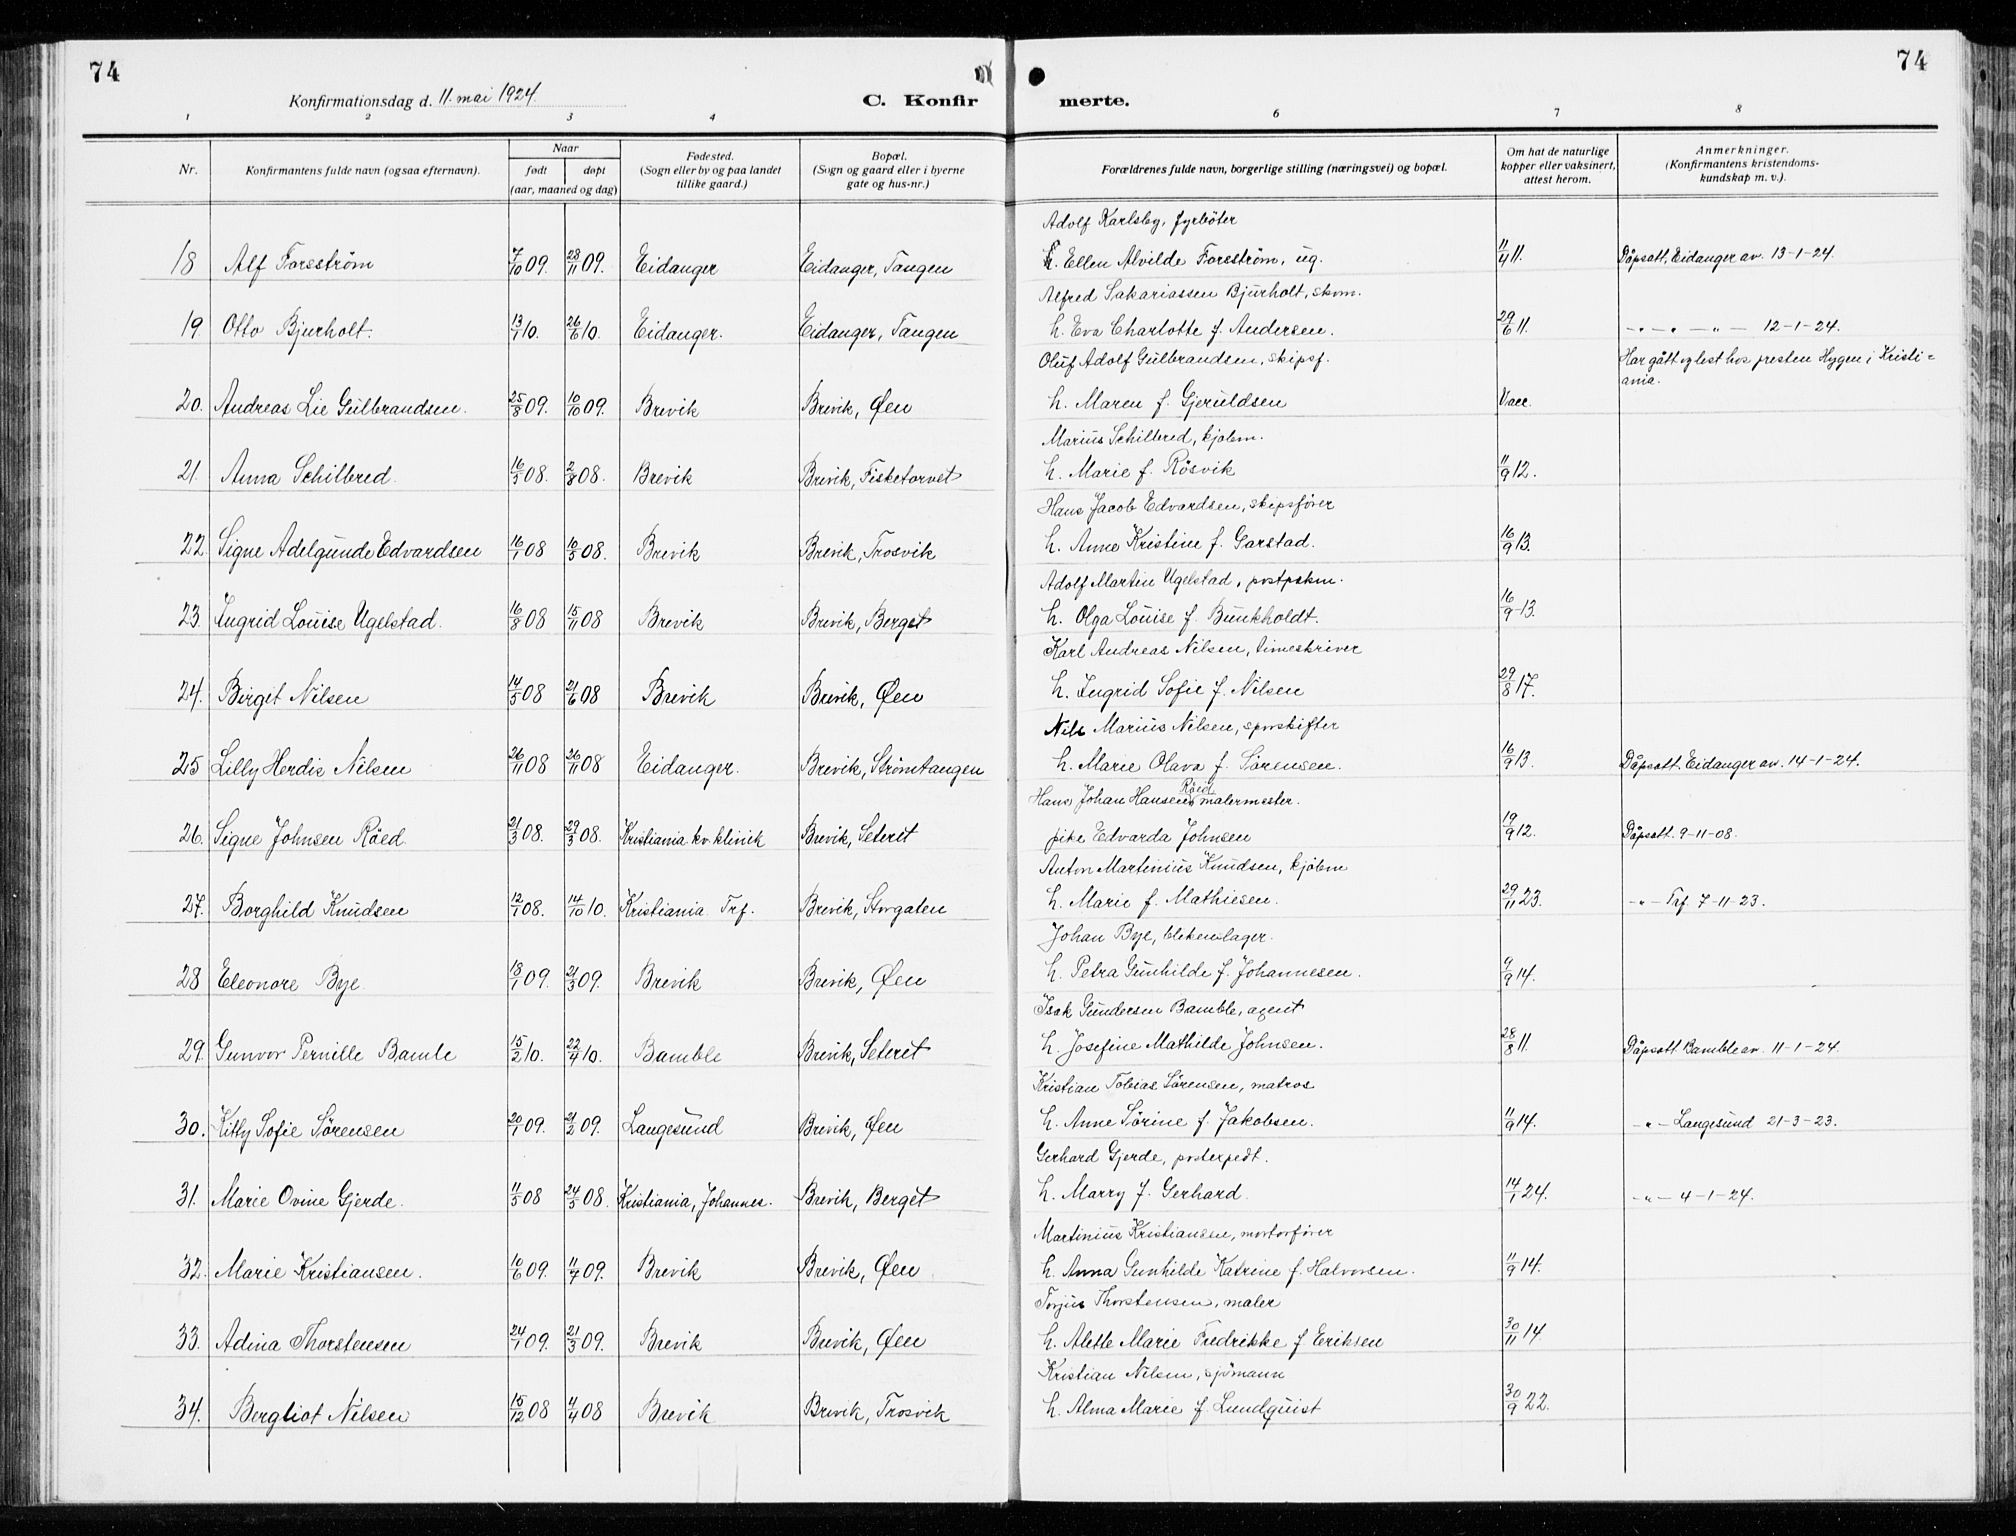 74
74
Konfirmationsdag d. 11. mai 1924.
C. Konfir
merte.
1 2 3 4 6 7 8
Nr. Konfirmantens fulde navn (ogsaa efternavn). Naar født døpt (aar, maaned og dag) Fødested. (Sogn eller by og paa landet tillike gaard.) Bopæl. (Sogn og gaard eller i byerne gate og hus-nr.) Forældrenes fulde navn, borgerlige stilling (næringsvei) og bopæl. Om hat de naturlige kopper eller vaksinert, attest herom. Anmerkninger. (Konfirmantens kristendoms-kundskap m. v.).
Adolf Karlsby, fyrbøter
18 Alf Forsström 7/10 09. 28/11 09. Eidanger Eidanger, Tangen h. Ellen Alvilde Forsström, ug. 11/4 11. Dåpsatt. Eidanger av. 13-1-24.
Alfred Sakariassen Bjurholt, skom.
19 Otto Bjurholt. 13/1 10. 26/6 10. Eidanger. Eidanger, Tangen h. Eva Charlotte f. Andersen. 29/6 11. -"-"-"- 12-1-24.
Oluf Adolf Gulbrandsen, skipsf. Har gått og lest hos presten Hygen i Kristi=
ania.
20. Andreas Lie Gulbrandsen. 25/8 09. 10/10 09. Brevik Brevik, Øen h. Maren f. Gjeruldsen Vacc.
Marius Schilbred, kjøbm.
21. Anna Schilbred. 16/5 08. 2/8 08. Brevik Brevik, Fisketorvet h. Marie f. Røsvik 11/9 12.
Hans Jacob Edvardsen, skipsfører
22 Signe Adelgunde Edvardsen 16/1 08 10/5 08. Brevik Brevik, Trosvik h. Anne Kristine f. Garstad. 16/9 13.
Adolf Martin Ugelstad, postpakm.
23. Ingrid Louise Ugelstad. 16/8 08 15/11 08 Brevik Brevik, Berget h. Olga Louise f. Bunkholdt. 16/9 13.
Karl Andreas Nilsen, timeskriver
24. Birgit Nilsen 14/5 08 21/6 08 Brevik Brevik, Øen h. Ingrid Sofie f. Nilsen 29/8 17.
Nils Marius Nilsen, sporskifter
25 Lilly Herdis Nilsen 26/11 08 26/11 08 Eidanger. Brevik, Strømtangen h. Marie Olava f. Sørensen. 16/9 13. Dåpsatt. Eidanger av. 14-1-24.
Røed
Hans Johan Hansen malermester.
26. Signe Johnsen Røed. 21/3 08. 29/3 08. Kristiania kv. klinik Brevik, Seteret pike Edvarda Johnsen 19/9 12. Dåpsatt. 9-11-08.
Anton Martinius Knudsen, kjøbm
27. Borghild Knudsen 12/1 08. 14/10 10. Kristiania Trf. Brevik, Storgaten h. Marie f. Mathiesen. 29/11 23. -"- Trf 7-11-23.
Johan Bye, blikenslager.
28 Eleonore Bye. 18/1 09. 21/3 09. Brevik Brevik, Øen h. Petra Gunhilde f. Johannesen. 9/9 14.
Isak Gundersen Bamble, agent
29. Gunvor Pernille Bamle 15/2 10. 22/4 10. Bamble Brevik, Seteret h. Josefine Mathilde Johnsen. 28/8 11. Dåpsatt. Bamble av. 11-1-24.
Kristian Tobias Sørensen, matros
30. Kitty Sofie Sørensen 20/1 09. 21/2 09. Langesund Brevik, Øen h. Anne Sørine f. Jakobsen. 11/9 14. -"- Langesund 21-3-23.
Gerhard Gjerde, postexpedt.
31. Marie Ovine Gjerde. 11/5 08 24/5 08. Kristiania, Johannes. Brevik, Berget h. Marry f. Gerhard. 14/1 24. -"- 4-1-24.
Martinius Kristiansen, mortorfører
32. Marie Kristiansen. 10/6 09. 11/7 09. Brevik Brevik, Øen h. Anna Gunhilde Katrine f. Halvorsen. 11/9 14.
Torjus Thorstensen, maler
33. Adina Thorstensen 24/1 09. 21/3 09. Brevik Brevik, Øen h. Alette Marie Fredrikke f Eriksen 30/11 14
Kristian Nilsen, sjømann
34. Bergliot Nilsen 15/12 08 4/4 08 Brevik Brevik, Trosvik h. Alma Marie f. Lundquist 30/9 22.